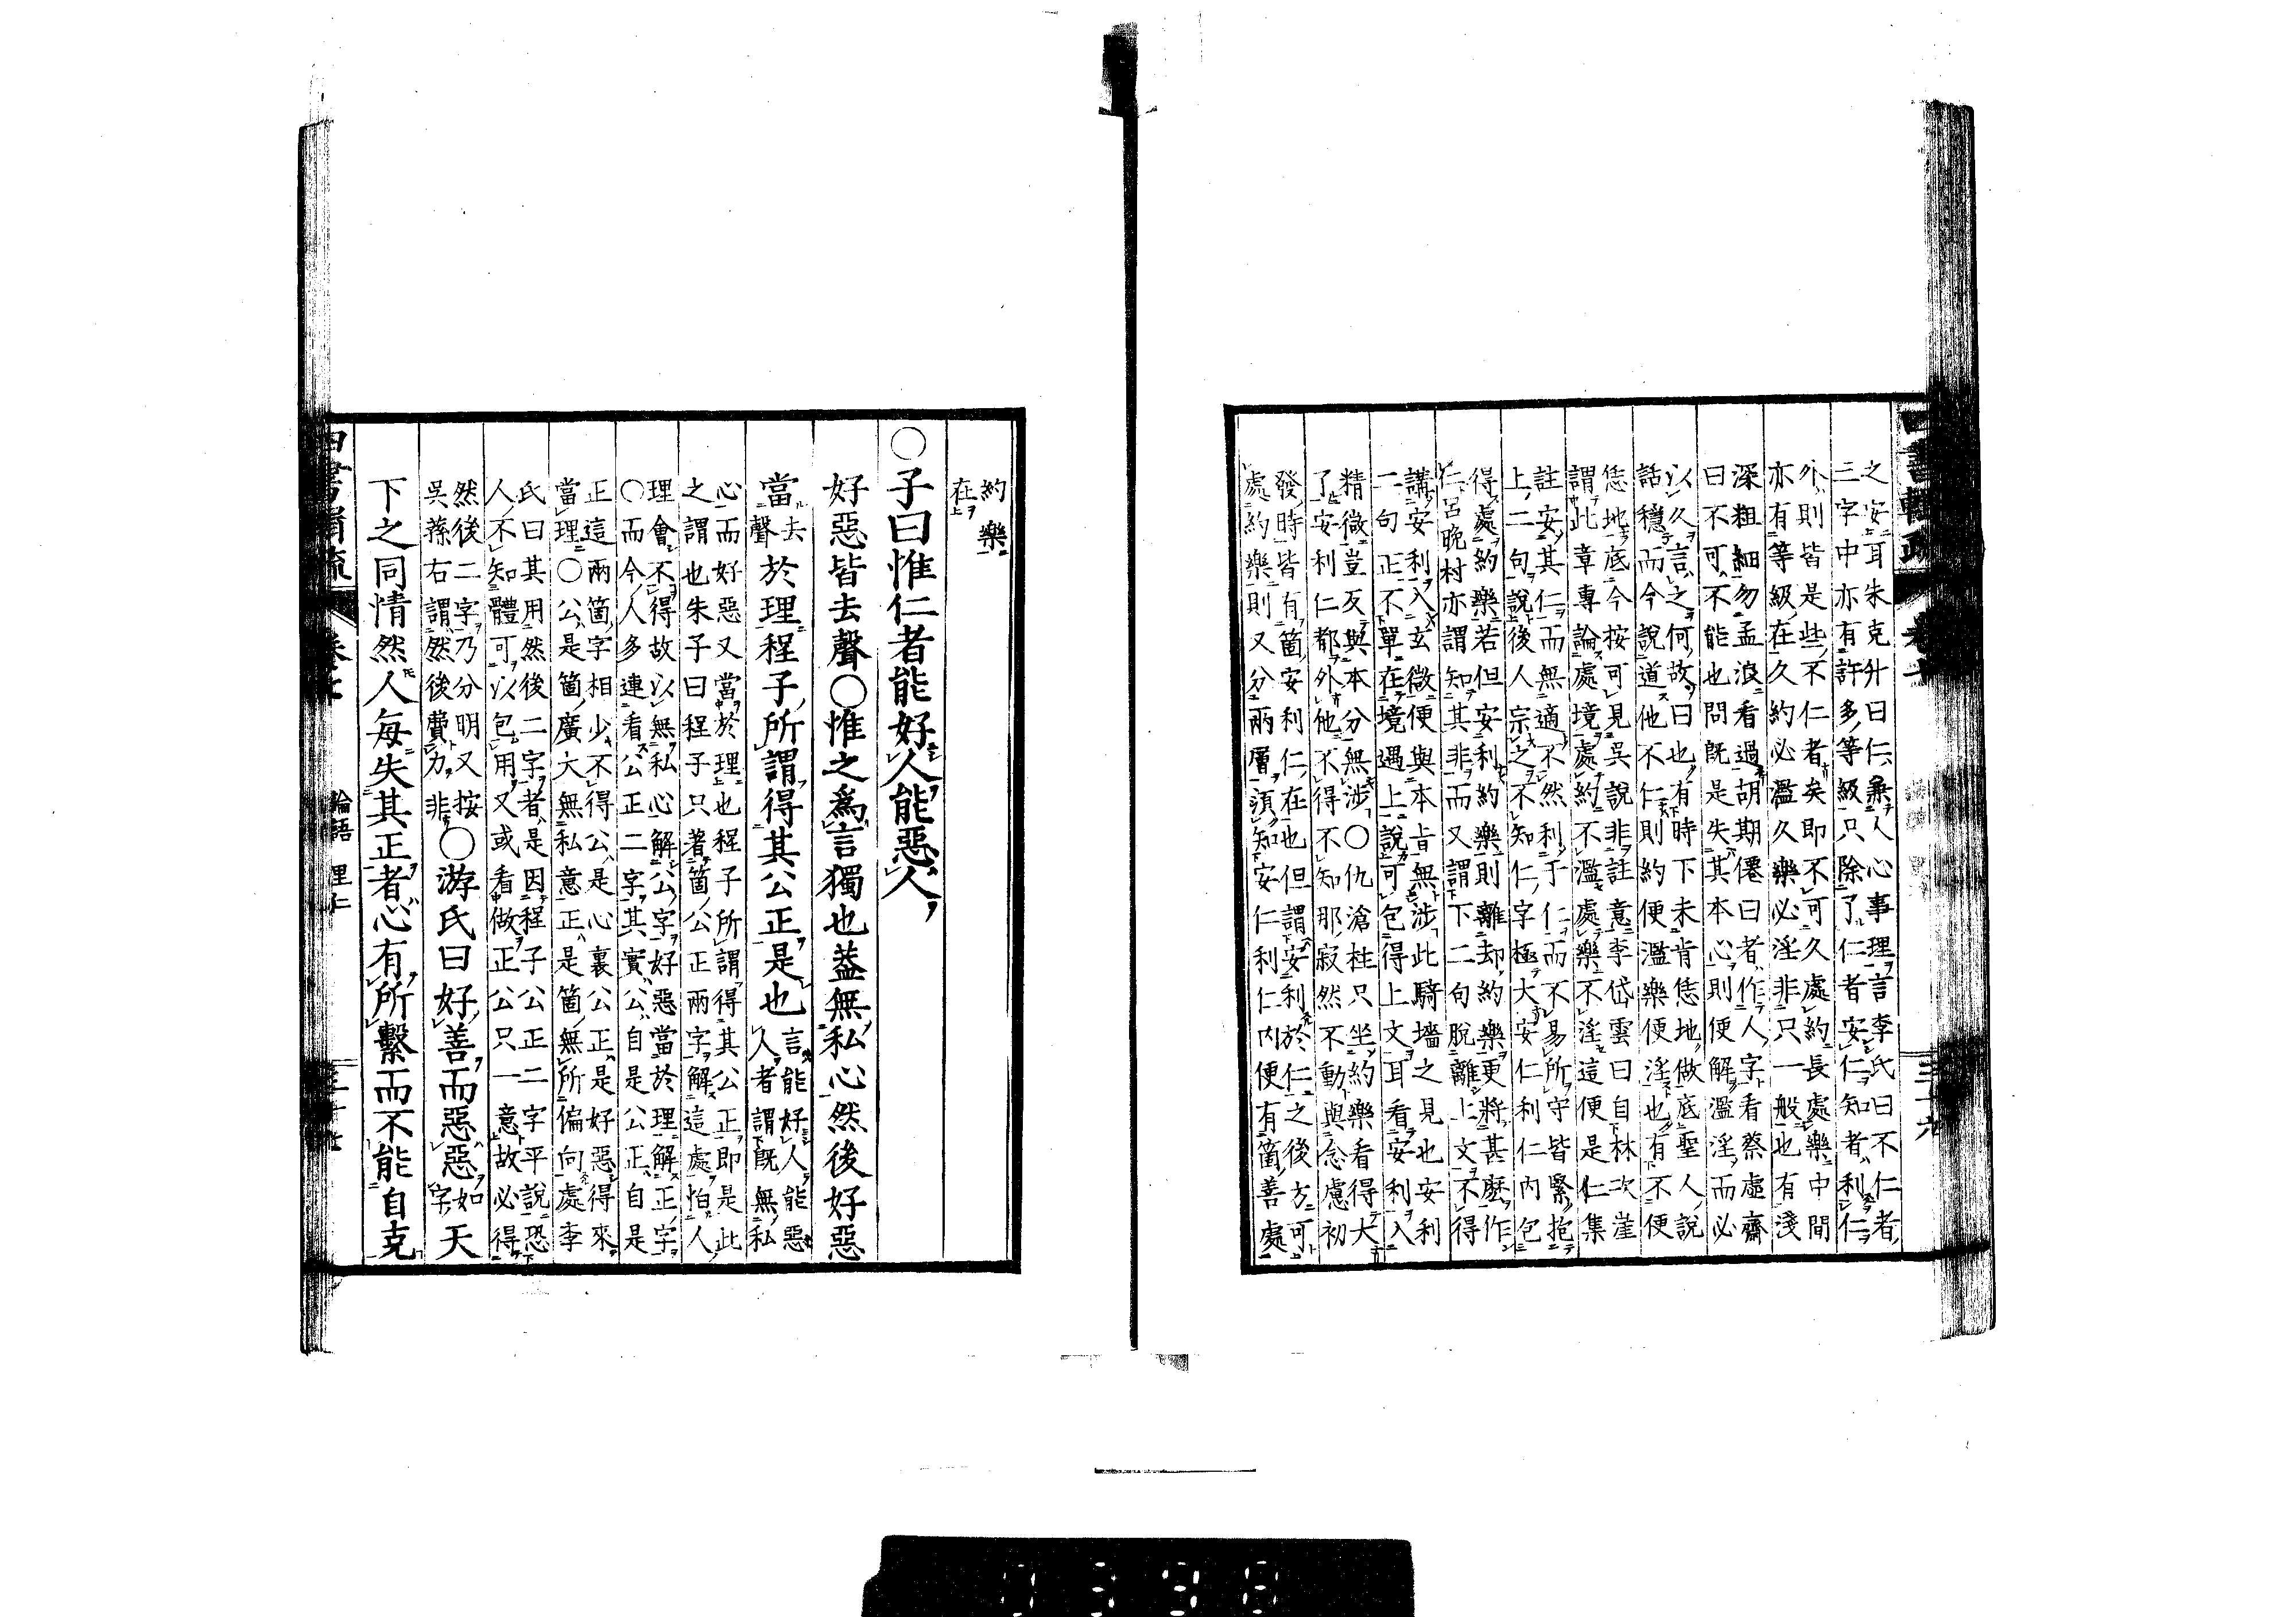 四書輯疏
之安耳朱克升曰仁兼人心事理言李氏曰不仁者
三字中亦有許多等級只除了仁者安仁知者利仁
外則皆是些不仁者矣即不可久處約長處樂中間
亦有等級在久約必濫久樂必淫非只一般也有淺
深粗細勿孟浪看過胡期僊曰者作人字看蔡虛齋
曰不可不能也問既是失其本心則便解濫淫而必
以久言之何故曰也有時下未肯恁地做底聖人說
話穩而今說道他不仁則約便濫樂便淫也有不便
恁地底今按可見吳說非註意李岱雲曰自林次崖
謂此章專論處境處約不濫處樂不淫這便是仁集
註安其仁而無適不然利于仁而不易所守皆緊抱
上二句說後人宗之不知仁字極大安仁利仁內包
得處約樂若但安利約樂則離却約樂更將甚麼作
仁呂晚村亦謂知其非而又謂下二句脫離上文不得
講安利入玄微便與本旨無涉此騎墻之見也安利
二句正不單在境遇上說可包得上文耳看安利入
精微豈反與本分無涉○仇滄柱只坐約樂看得大
了安利仁都外他不得不知那寂然不動與念慮初
發時皆有箇安利仁在也但謂安利於仁之後方可
處約樂則又分兩層須知安仁利仁內便有箇善處
約樂
在
○子曰惟仁者能好人能惡人
好惡皆去聲○惟之爲言獨也蓋無私心然後好惡
當去聲於理程子所謂得其公正是也言能好人能惡
人者謂既無私
心而好惡又當於理也程子所謂得其公正即是此
之謂也朱子曰程子只著箇公正兩字解這處怕人
理會不得故以無私心解公字好惡當於理解正字
○而今人多連看公正二字其實公自是公正自是
正這兩箇字相少不得公是心裏公正是好惡得來
當理○公是箇廣大無私意正是箇無所偏向處李
氏曰其用然後二字者是因程子公正二字平說恐
人不知體可以包用又或看做正公只一意故必得
然後二字乃分明又按
吳蓀右謂然後費力非○游氏曰好善而惡惡如字天
下之同情然人每失其正者心有所繫而不能自克
論語 里仁